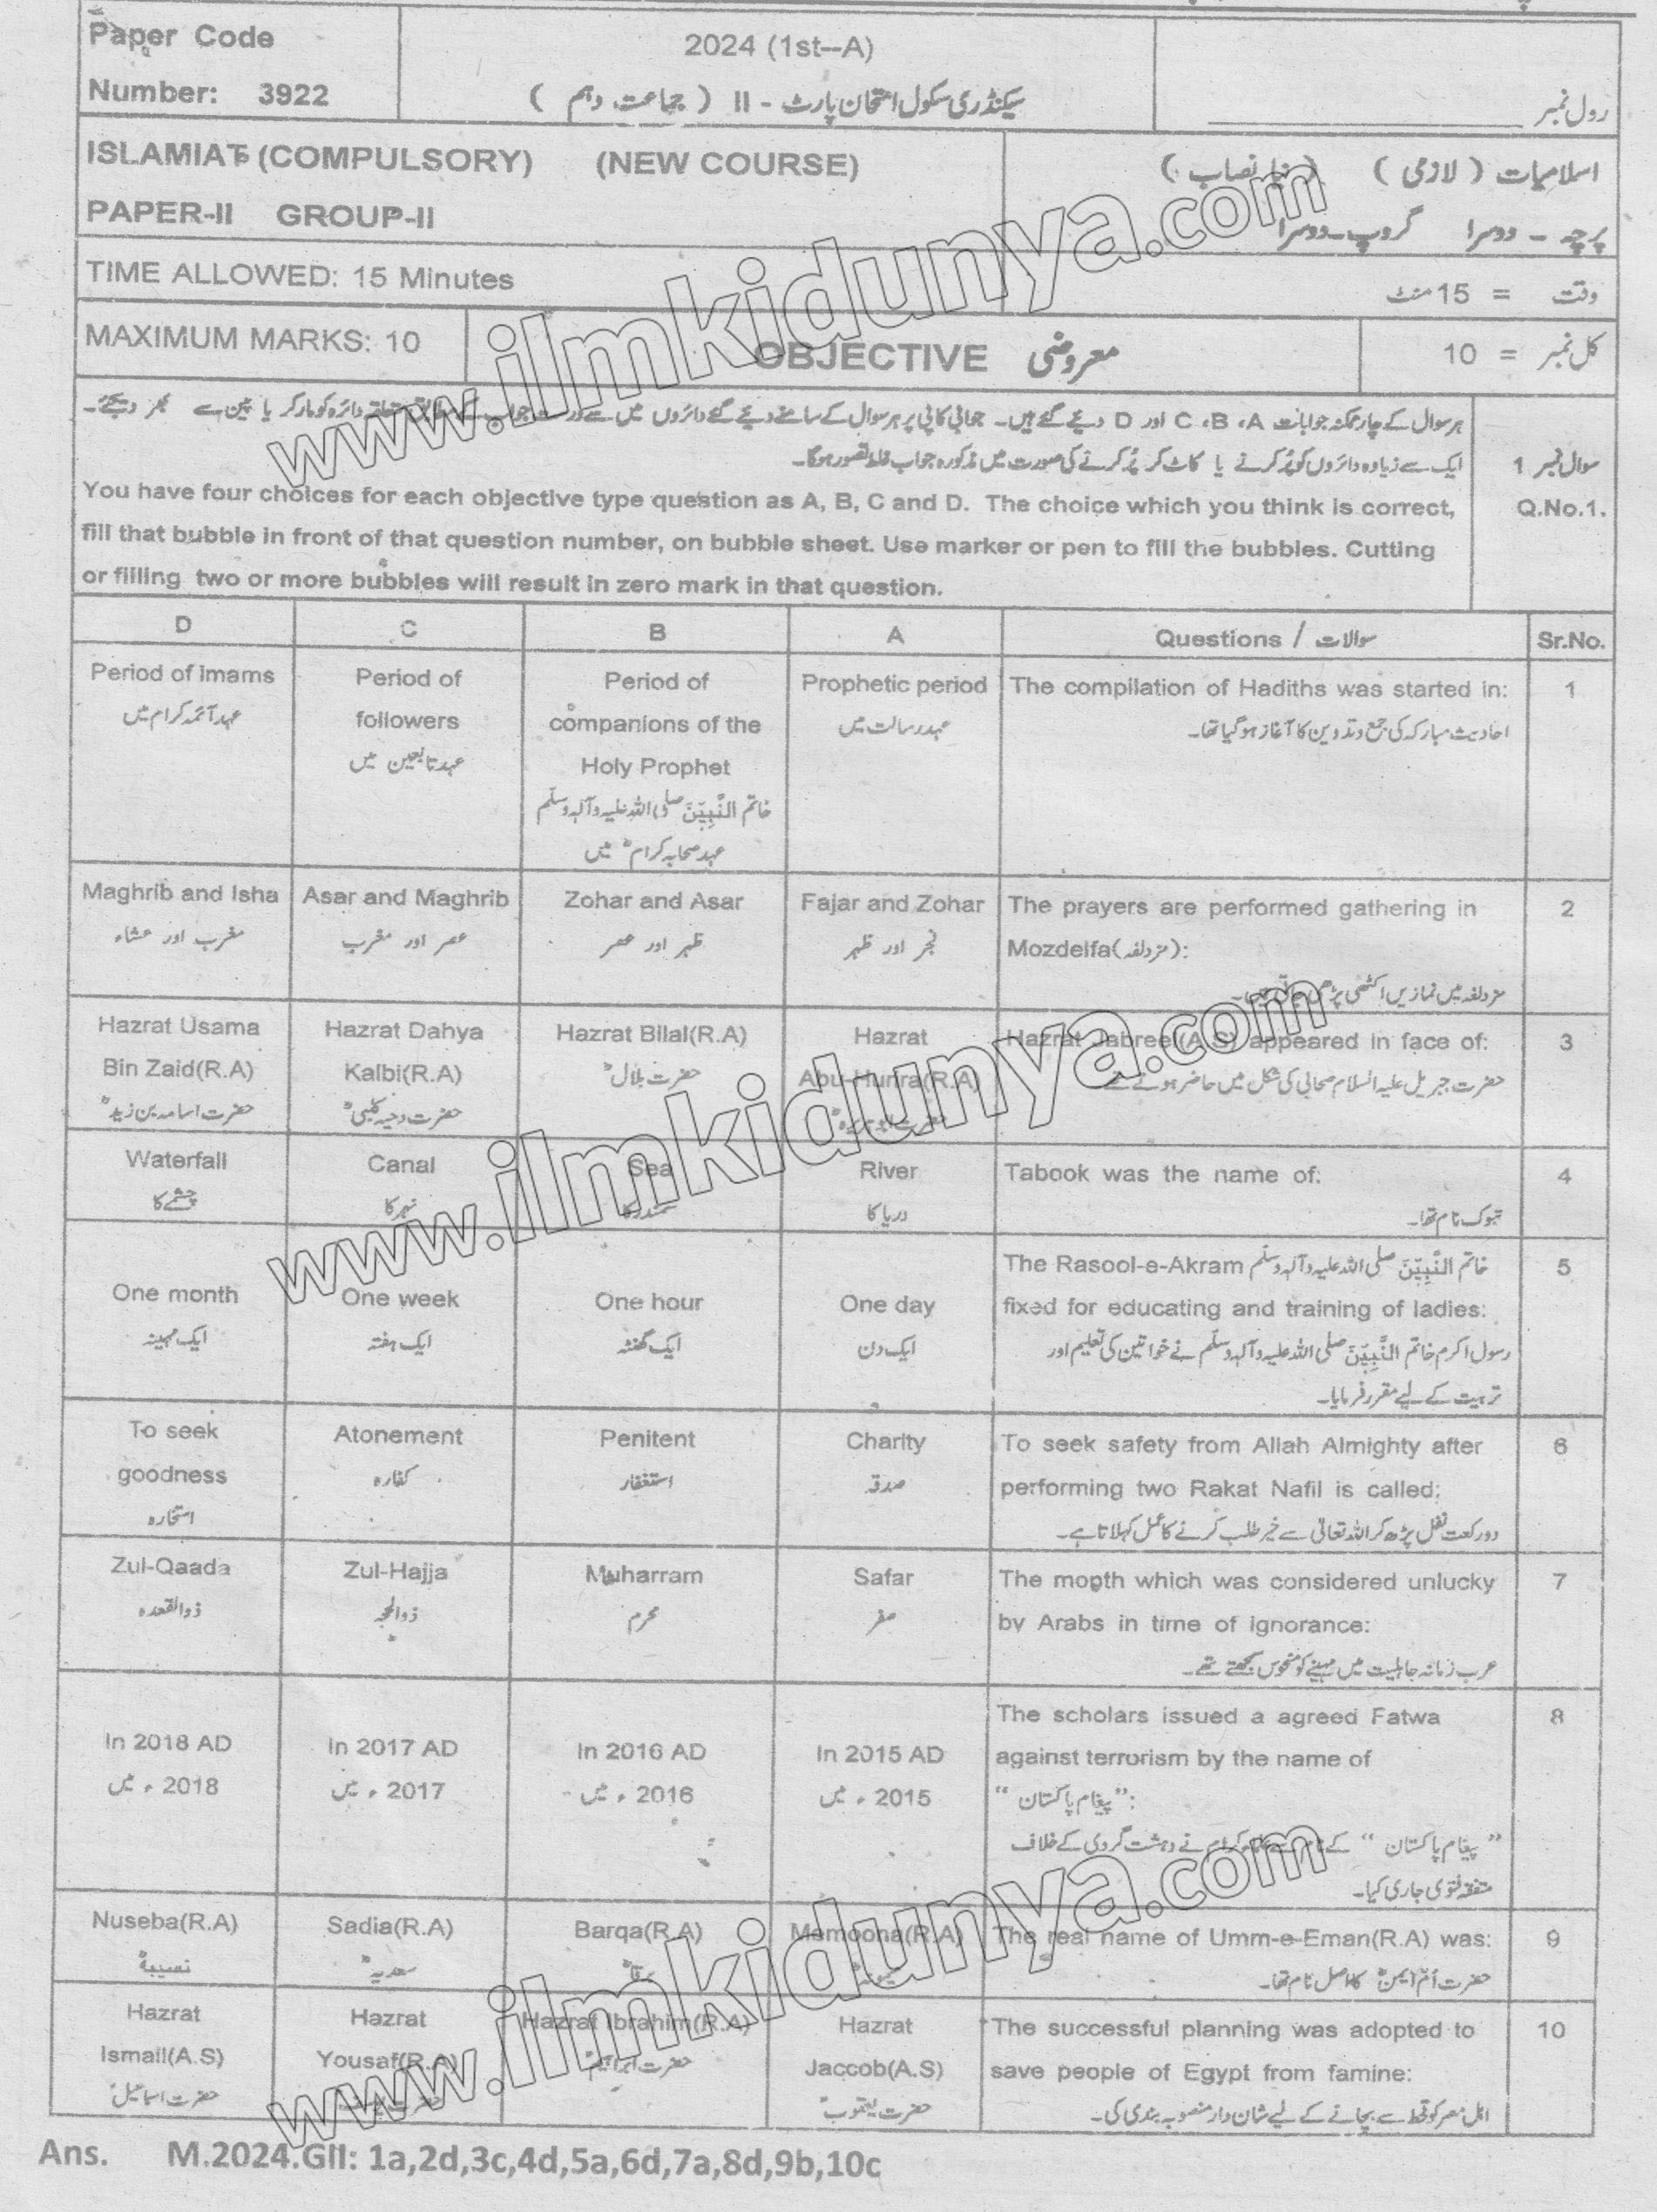 Paper Code
Number: 3922
2024 (1st--A)
سیکنڈری سکول امتحان پارٹ - II ( جماعت دہم )
رول نمبر
ISLAMIAT (COMPULSORY) (NEW COURSE)
PAPER-II GROUP-II
اسلامیات ( لازمی ) ( نیا نصاب )
پرچہ - دوسرا گروپ - دوسرا
TIME ALLOWED: 15 Minutes
وقت = 15 منٹ
MAXIMUM MARKS: 10
OBJECTIVE معروضی
کل نمبر = 10
سوال نمبر 1
ہر سوال کے چار ممکنہ جوابات A، B، C اور D دیئے گئے ہیں۔ جوابی کاپی پر ہر سوال کے سامنے دیئے گئے دائروں میں سے درست جواب کے مطابق متعلقہ دائرہ کو مارکر یا پین سے بھر دیجئے۔
ایک سے زیادہ دائروں کو پُر کرنے یا کاٹ کر پُر کرنے کی صورت میں مذکورہ جواب غلط تصور ہوگا۔
Q.No.1.
You have four choices for each objective type question as A, B, C and D. The choice which you think is correct,
fill that bubble in front of that question number, on bubble sheet. Use marker or pen to fill the bubbles. Cutting
or filling two or more bubbles will result in zero mark in that question.
D C B A Questions / سوالات Sr.No.
1
The compilation of Hadiths was started in:
احادیث مبارکہ کی جمع و تدوین کا آغاز ہو گیا تھا۔
Prophetic period
عہد رسالت میں
Period of
companions of the
Holy Prophet
خاتم النَّبِیّٖنَ صلی اللہ علیہ وآلہٖ وسلّم
عہد صحابہ کرامؓ میں
Period of
followers
عہد تابعین میں
Period of Imams
عہد آئمہ کرام میں
2
The prayers are performed gathering in
Mozdelfa(مزدلفہ):
مزدلفہ میں نمازیں اکٹھی پڑھی جاتی ہیں۔
Fajar and Zohar
فجر اور ظہر
Zohar and Asar
ظہر اور عصر
Asar and Maghrib
عصر اور مغرب
Maghrib and Isha
مغرب اور عشاء
3
Hazrat Jabreel(A.S) appeared in face of:
حضرت جبریل علیہ السلام صحابی کی شکل میں حاضر ہوتے تھے
Hazrat
Abu-Hurira(R.A)
Hazrat Bilal(R.A)
حضرت بلالؓ
Hazrat Dahya
Kalbi(R.A)
حضرت دحیہ کلبیؓ
Hazrat Usama
Bin Zaid(R.A)
حضرت اسامہ بن زیدؓ
4
Tabook was the name of:
تبوک نام تھا۔
River
دریا کا
Sea
سمندر کا
Canal
نہر کا
Waterfall
چشمے کا
5
The Rasool-e-Akram خاتم النَّبِیّٖنَ صلی اللہ علیہ وآلہٖ وسلّم
fixed for educating and training of ladies:
رسول اکرم خاتم النَّبِیّٖنَ صلی اللہ علیہ وآلہٖ وسلّم نے خواتین کی تعلیم اور
تربیت کے لیے مقرر فرمایا۔
One day
ایک دن
One hour
ایک گھنٹہ
One week
ایک ہفتہ
One month
ایک مہینہ
6
To seek safety from Allah Almighty after
performing two Rakat Nafil is called:
دو رکعت نفل پڑھ کر اللہ تعالیٰ سے خیر طلب کرنے کا عمل کہلاتا ہے۔
Charity
صدقہ
Penitent
استغفار
Atonement
کفارہ
To seek
goodness
استخارہ
7
The month which was considered unlucky
by Arabs in time of ignorance:
عرب زمانہ جاہلیت میں مہینے کو منحوس سمجھتے تھے۔
Safar
صفر
Muharram
محرم
Zul-Hajja
ذوالحجہ
Zul-Qaada
ذوالقعدہ
8
The scholars issued a agreed Fatwa
against terrorism by the name of
"پیغام پاکستان":
"پیغام پاکستان" کے نام سے علماء کرام نے دہشت گردی کے خلاف
متفقہ فتویٰ جاری کیا۔
In 2015 AD
2015ء میں
In 2016 AD
2016ء میں
In 2017 AD
2017ء میں
In 2018 AD
2018ء میں
9
The real name of Umm-e-Eman(R.A) was:
حضرت اُمّ ایمنؓ کا اصل نام تھا۔
Memoona(R.A)
Barqa(R.A)
برقہؓ
Sadia(R.A)
سعدیہؓ
Nuseba(R.A)
نسیبہؓ
10
The successful planning was adopted to
save people of Egypt from famine:
اہل مصر کو قحط سے بچانے کے لیے شان دار منصوبہ بندی کی۔
Hazrat
Jaccob(A.S)
حضرت یعقوبؑ
Hazrat Ibrahim(R.A)
حضرت ابراہیمؑ
Hazrat
Yousaf(R.A)
Hazrat
Ismail(A.S)
حضرت اسماعیلؑ
Ans. M.2024.GII: 1a,2d,3c,4d,5a,6d,7a,8d,9b,10c
www.ilmkidunya.com
www.ilmkidunya.com
www.ilmkidunya.com